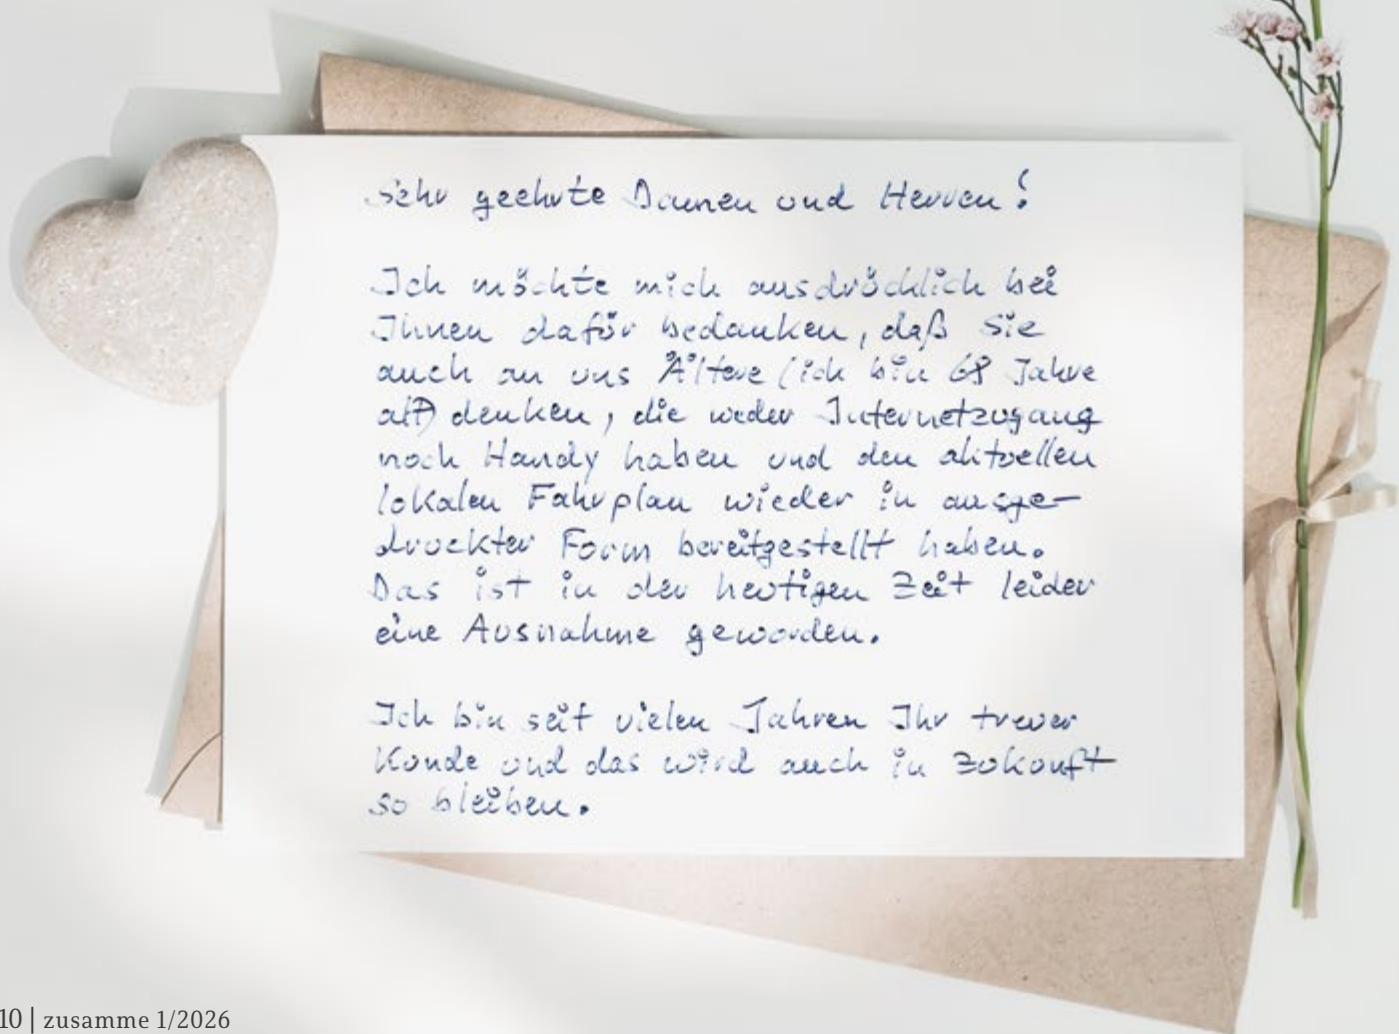 Sehr geehrte Damen und Herren!
Ich möchte mich ausdrücklich bei
Ihnen dafür bedanken, daß Sie
auch an uns Ältere (ich bin 68 Jahre
alt) denken, die weder Internetzugang
noch Handy haben und den aktuellen
lokalen Fahrplan wieder in ausge-
druckter Form bereitgestellt haben.
Das ist in der heutigen Zeit leider
eine Ausnahme geworden.
Ich bin seit vielen Jahren Ihr treuer
Kunde und das wird auch in Zukunft
so bleiben.
10 | zusamme 1/2026